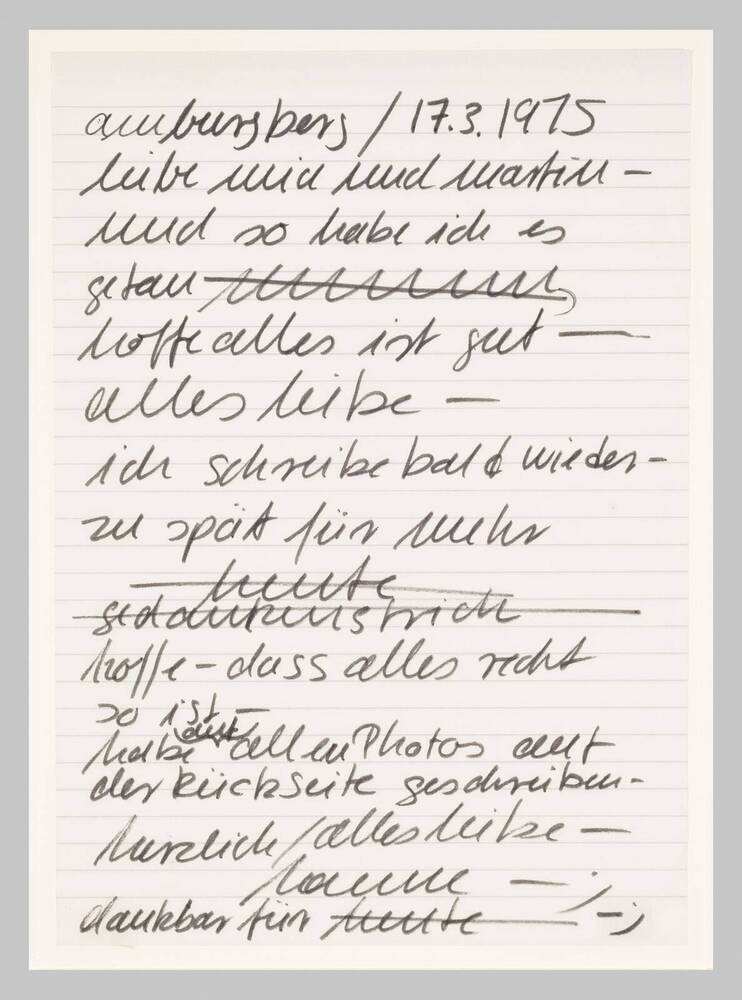 amburgberg / 17.3.1975
liebe mia und martin —
und so habe ich es
getan
hoffe alles ist gut —
alles liebe —
ich schreibe bald wieder -
zu spät für mehr
heute
gedankenstrich
hoffe - dass alles recht
so ist —
habe allen Photos auf
der Rückseite geschrieben -
herzlich / alles liebe —
hanne —;
dankbar für heute —;